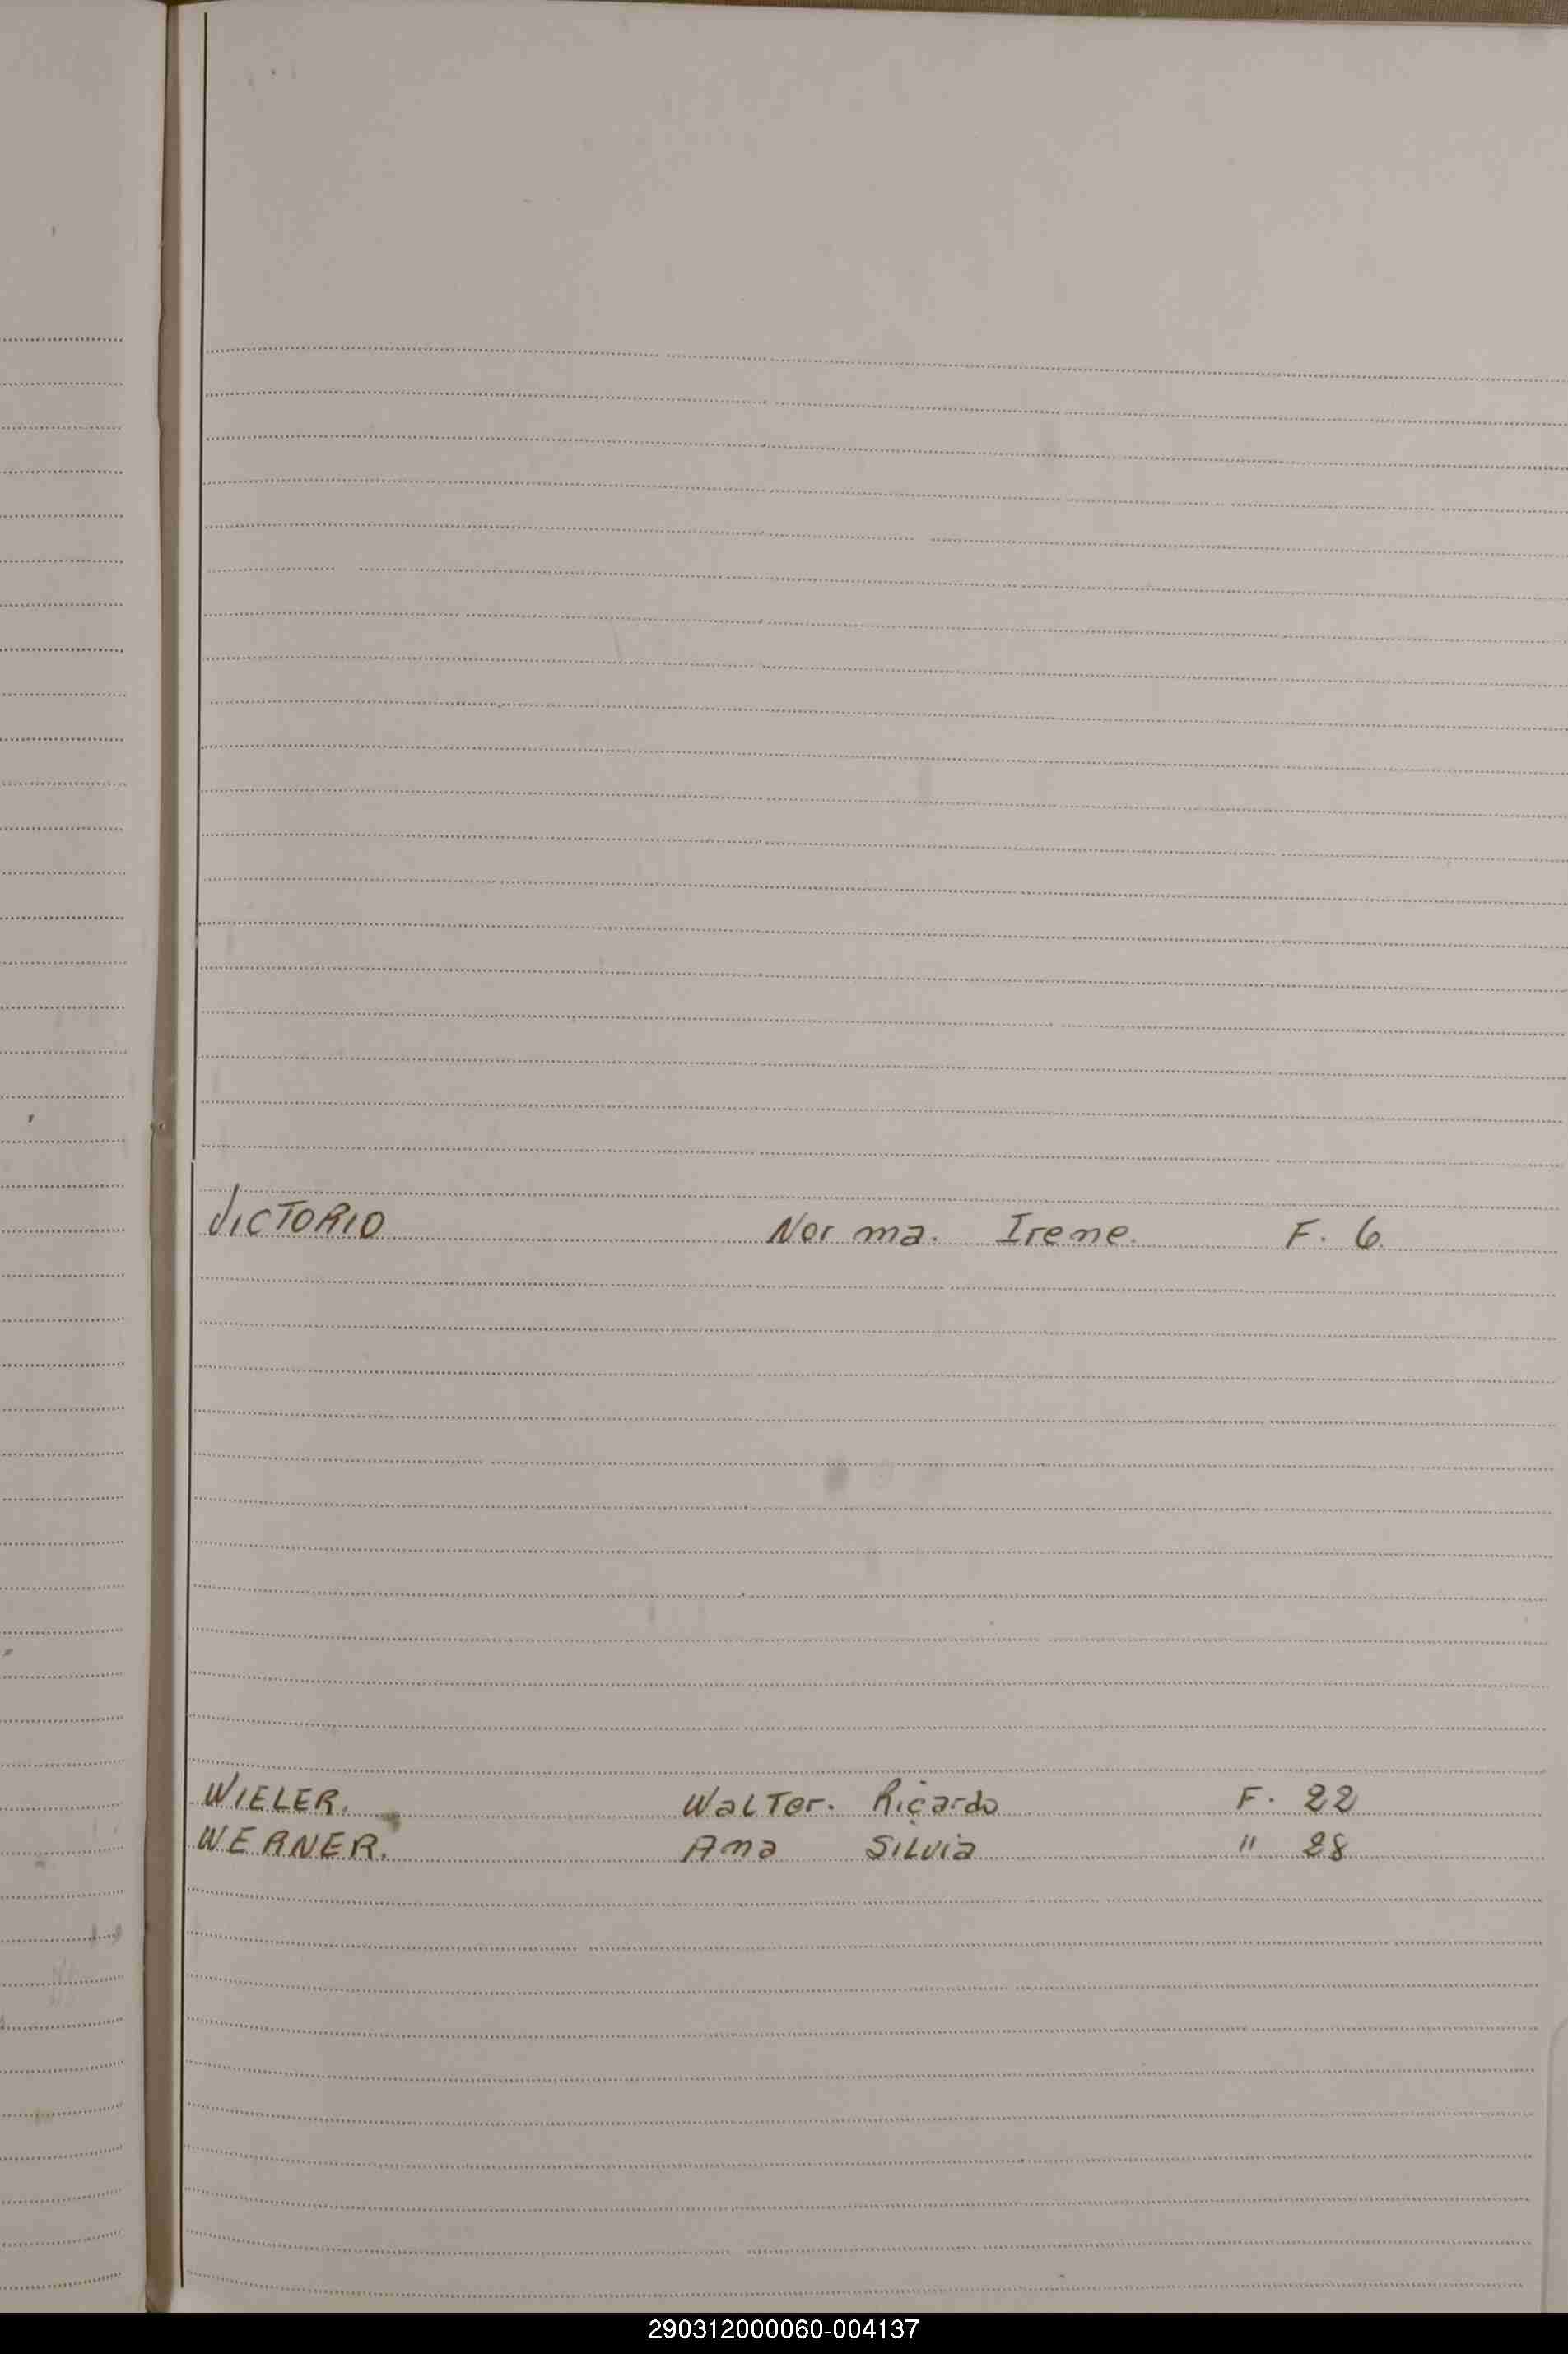 VICTORIO Norma. Irene. F. 6.
WIELER. Walter. Ricardo F. 22
WERNER. Ana Silvia " 28
290312000060-004137